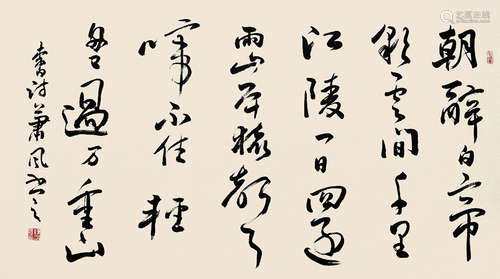 朝辭白帝
彩雲間千里
江陵一日還
兩岸猿聲
啼不住輕
舟已過万重山
詩蕭風書之